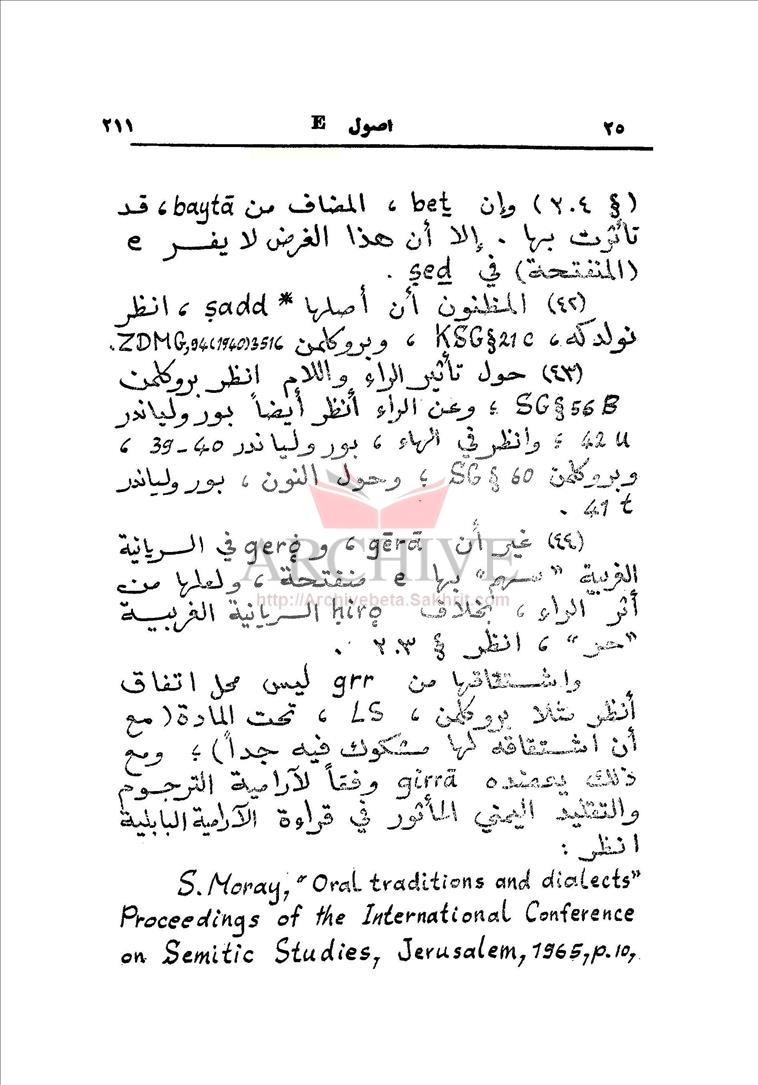 ٢٥ اصول E ٢١١
(§ ٢.٤) وإن beṯ ، المضاف من baytā ، قد
تأثرت بها . إلا أن هذا الغرض لا يفسر e
(المنفتحة) في ṣeḏ .
(٤٢) المظنون أن أصلها *ṣadd ، انظر
نولدكه ، KSG§21c ، وبروكلمن ZDMG,94(1940)3516.
(٤٣) حول تأثير الراء واللام انظر بروكلمن
SG§56B ؛ وعن الراء أنظر أيضاً بور ولياندر
42u ؛ وانظر في الهاء ، بور ولياندر 39-40 ،
وبروكلمن SG§60 ؛ وحول النون ، بور ولياندر
41t .
ARCHIVE
http://Archivebeta.Sakhrit.com
(٤٤) غير أن gērā ، و gerǫ في السريانية
الغربية "سهم" بها e منفتحة ، ولعلها من
أثر الراء ، بخلاف ḥirǫ السريانية الغربية
"حر" ، انظر § ٢.٣ .
واشتقاقها من grr ليس محل اتفاق
أنظر مثلا بروكلمن ، LS ، تحت المادة (مع
أن اشتقاقه لها مشكوك فيه جداً) ؛ ومع
ذلك يعضده girrā وفقاً لآرامية الترجوم
والتقليد اليمني المأثور في قراءة الآرامية البابلية
انظر :
S. Moray, "Oral traditions and dialects"
Proceedings of the International Conference
on Semitic Studies, Jerusalem, 1965, p.10,